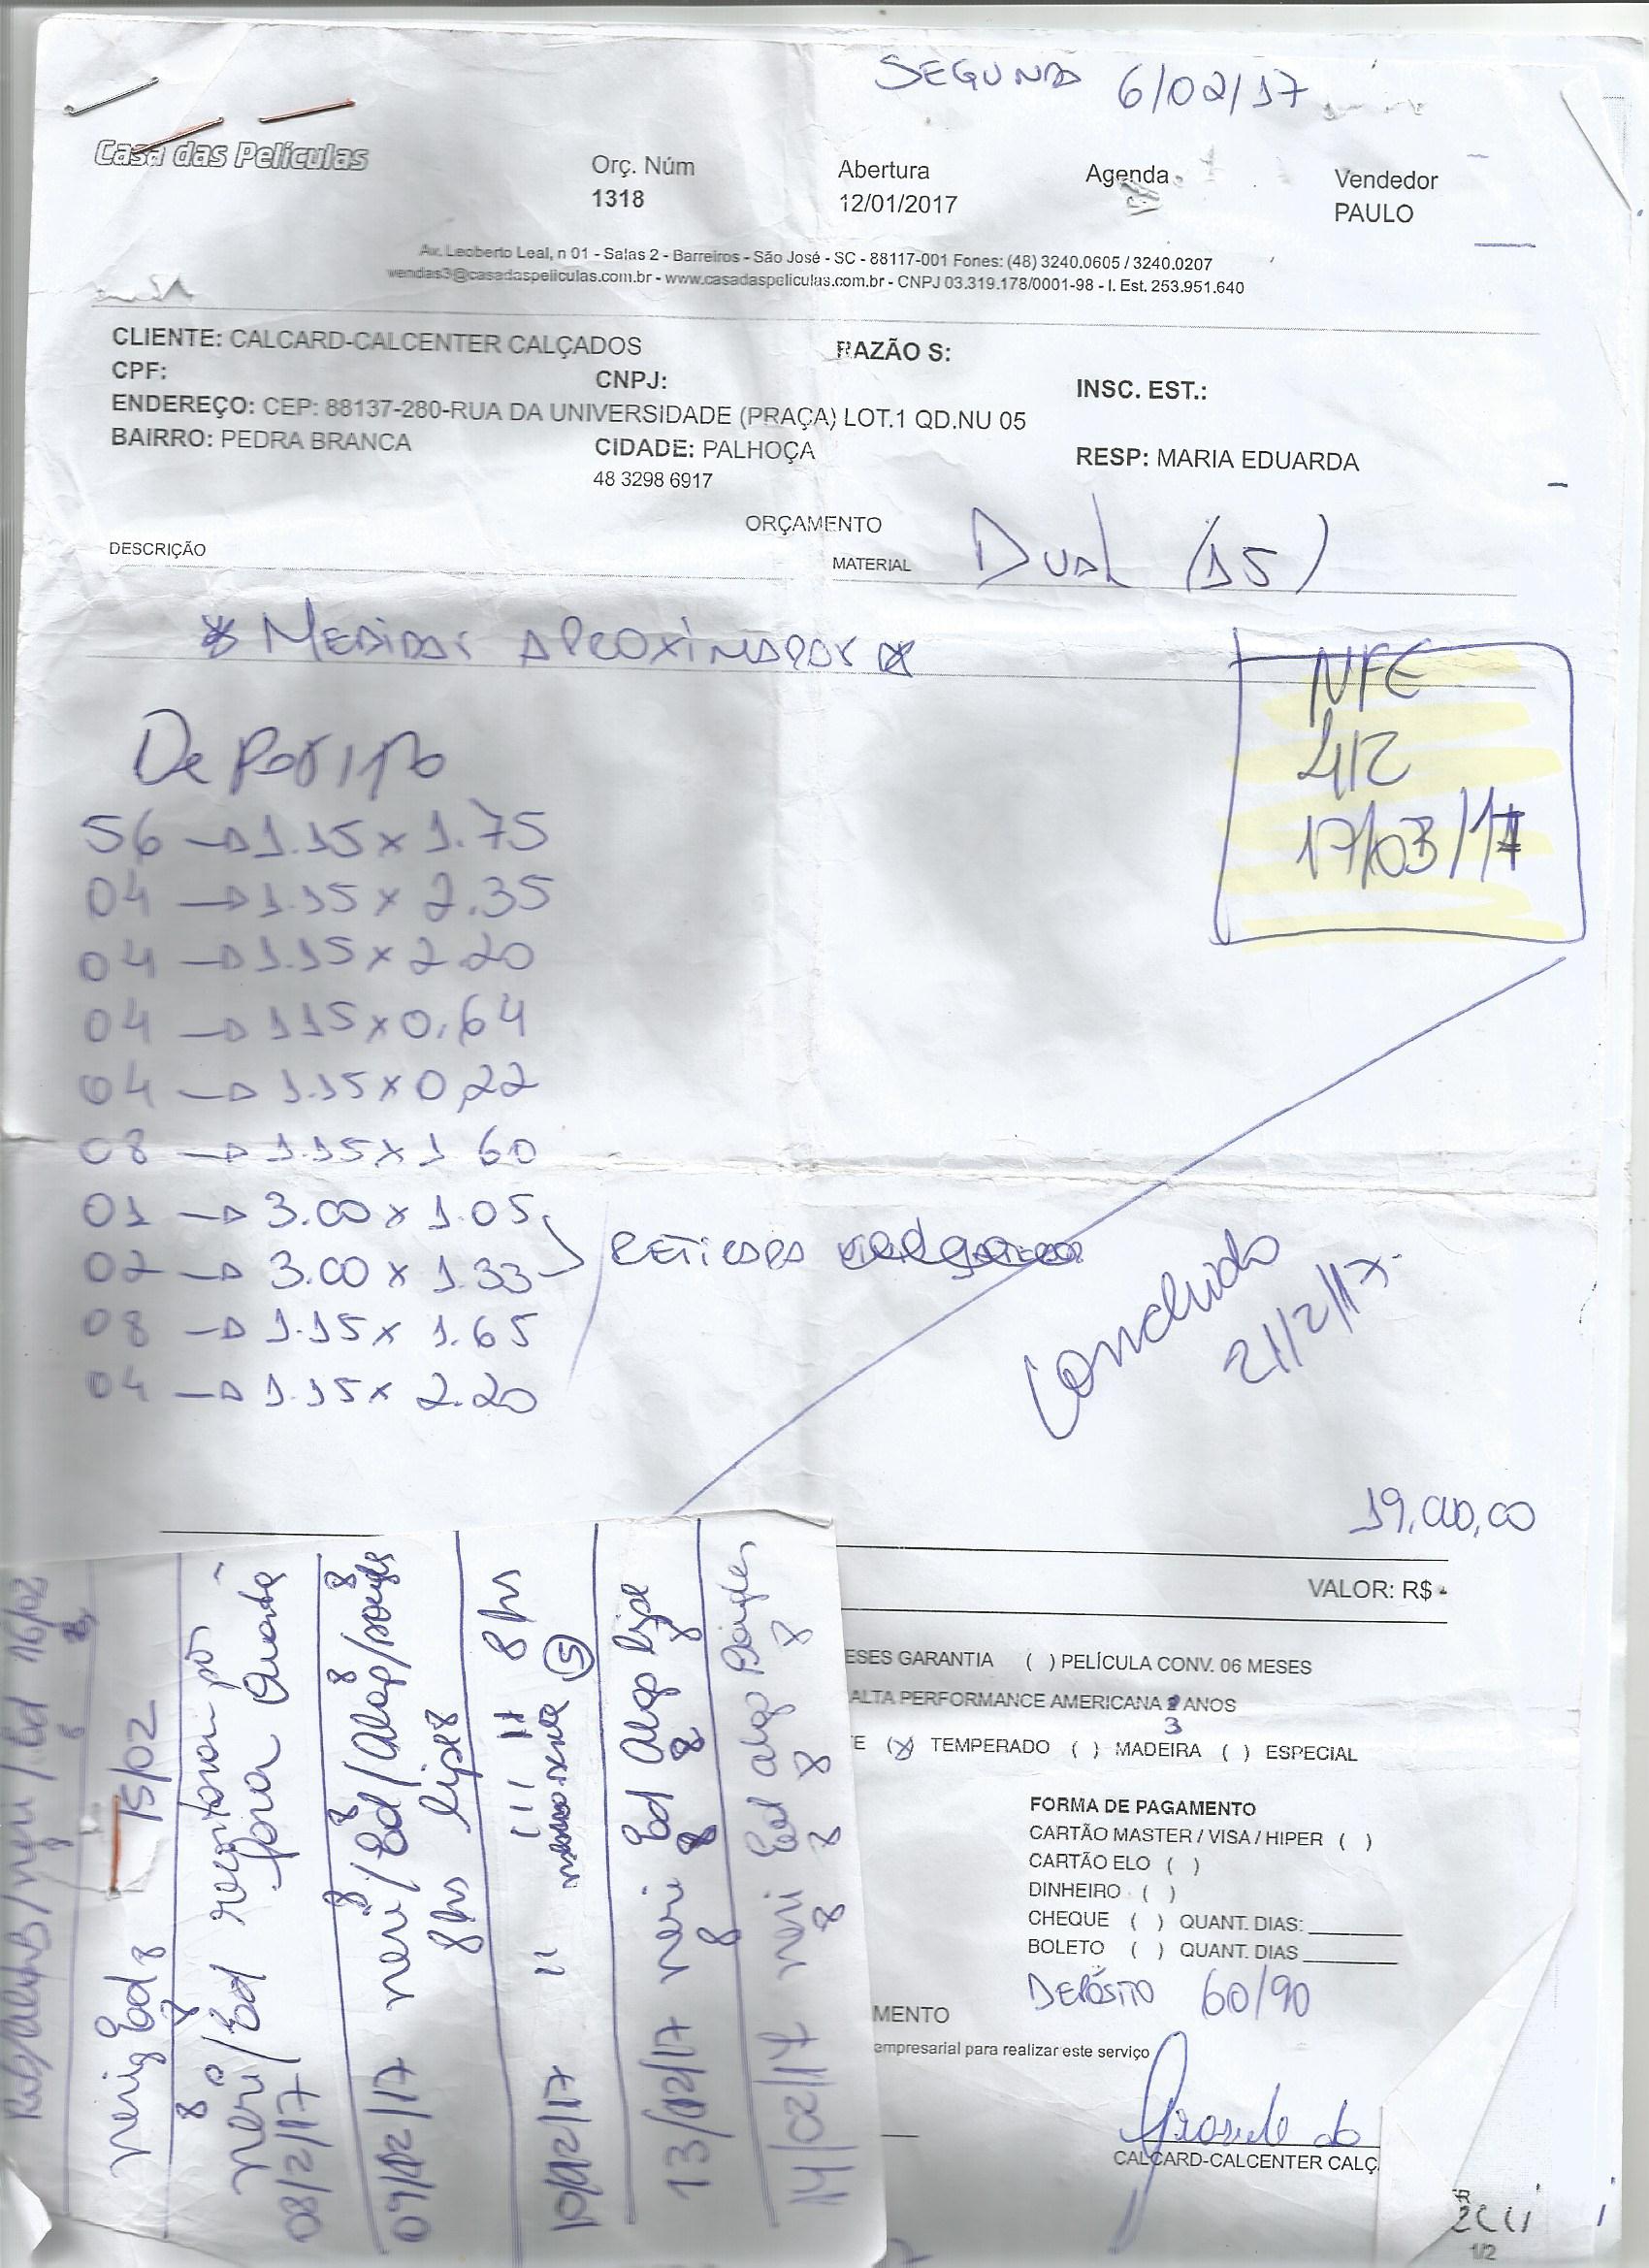 SEGUNDA 6/02/17
Casa das Películas
Orç. Núm
1318
Abertura
12/01/2017
Agenda
Vendedor
PAULO
Av. Leoberto Leal, n 01 - Salas 2 - Barreiros - São José - SC - 88117-001 Fones: (48) 3240.0605 / 3240.0207
vendas3@casadaspeliculas.com.br - www.casadaspeliculas.com.br - CNPJ 03.319.178/0001-98 - I. Est. 253.951.640
CLIENTE: CALCARD-CALCENTER CALÇADOS
RAZÃO S:
CPF:
CNPJ:
INSC. EST.:
ENDEREÇO: CEP: 88137-280-RUA DA UNIVERSIDADE (PRAÇA) LOT.1 QD.NU 05
BAIRRO: PEDRA BRANCA
CIDADE: PALHOÇA
RESP: MARIA EDUARDA
48 3298 6917
ORÇAMENTO
DESCRIÇÃO
MATERIAL
DUAL (15)
* MEDIDAS APROXIMADAS *
NFE
412
17/03/17
56 → 1.15 x 1.75
04 → 1.15 x 2.35
04 → 1.15 x 2.20
04 → 115 x 0.64
04 → 1.15 x 0,22
08 → 1.15 x 1 60
01 → 3.00 x 1.05
02 → 3.00 x 1.33
RETIRADA
08 → 1.15 x 1.65
04 → 1.15 x 2.20
Concluido
21/2/17
19.000,00
VALOR: R$
ESES GARANTIA ( ) PELÍCULA CONV. 06 MESES
ALTA PERFORMANCE AMERICANA ANOS
3
E (X) TEMPERADO ( ) MADEIRA ( ) ESPECIAL
FORMA DE PAGAMENTO
CARTÃO MASTER / VISA / HIPER ( )
CARTÃO ELO ( )
DINHEIRO ( )
CHEQUE ( ) QUANT. DIAS:
BOLETO ( ) QUANT. DIAS
DEPÓSITO 60/90
MENTO
empresarial para realizar este serviço
CALCARD-CALCENTER CALÇ.
1/2
16/02
15/02
08/2/17 neri/Ed
para Quarta
09/02/17 neri/Ed
8hs
10/02/17 " " " " 8hs
13/02/17 neri Ed
8 8 8 8
14/02/17 neri Ed
8 8 8 8